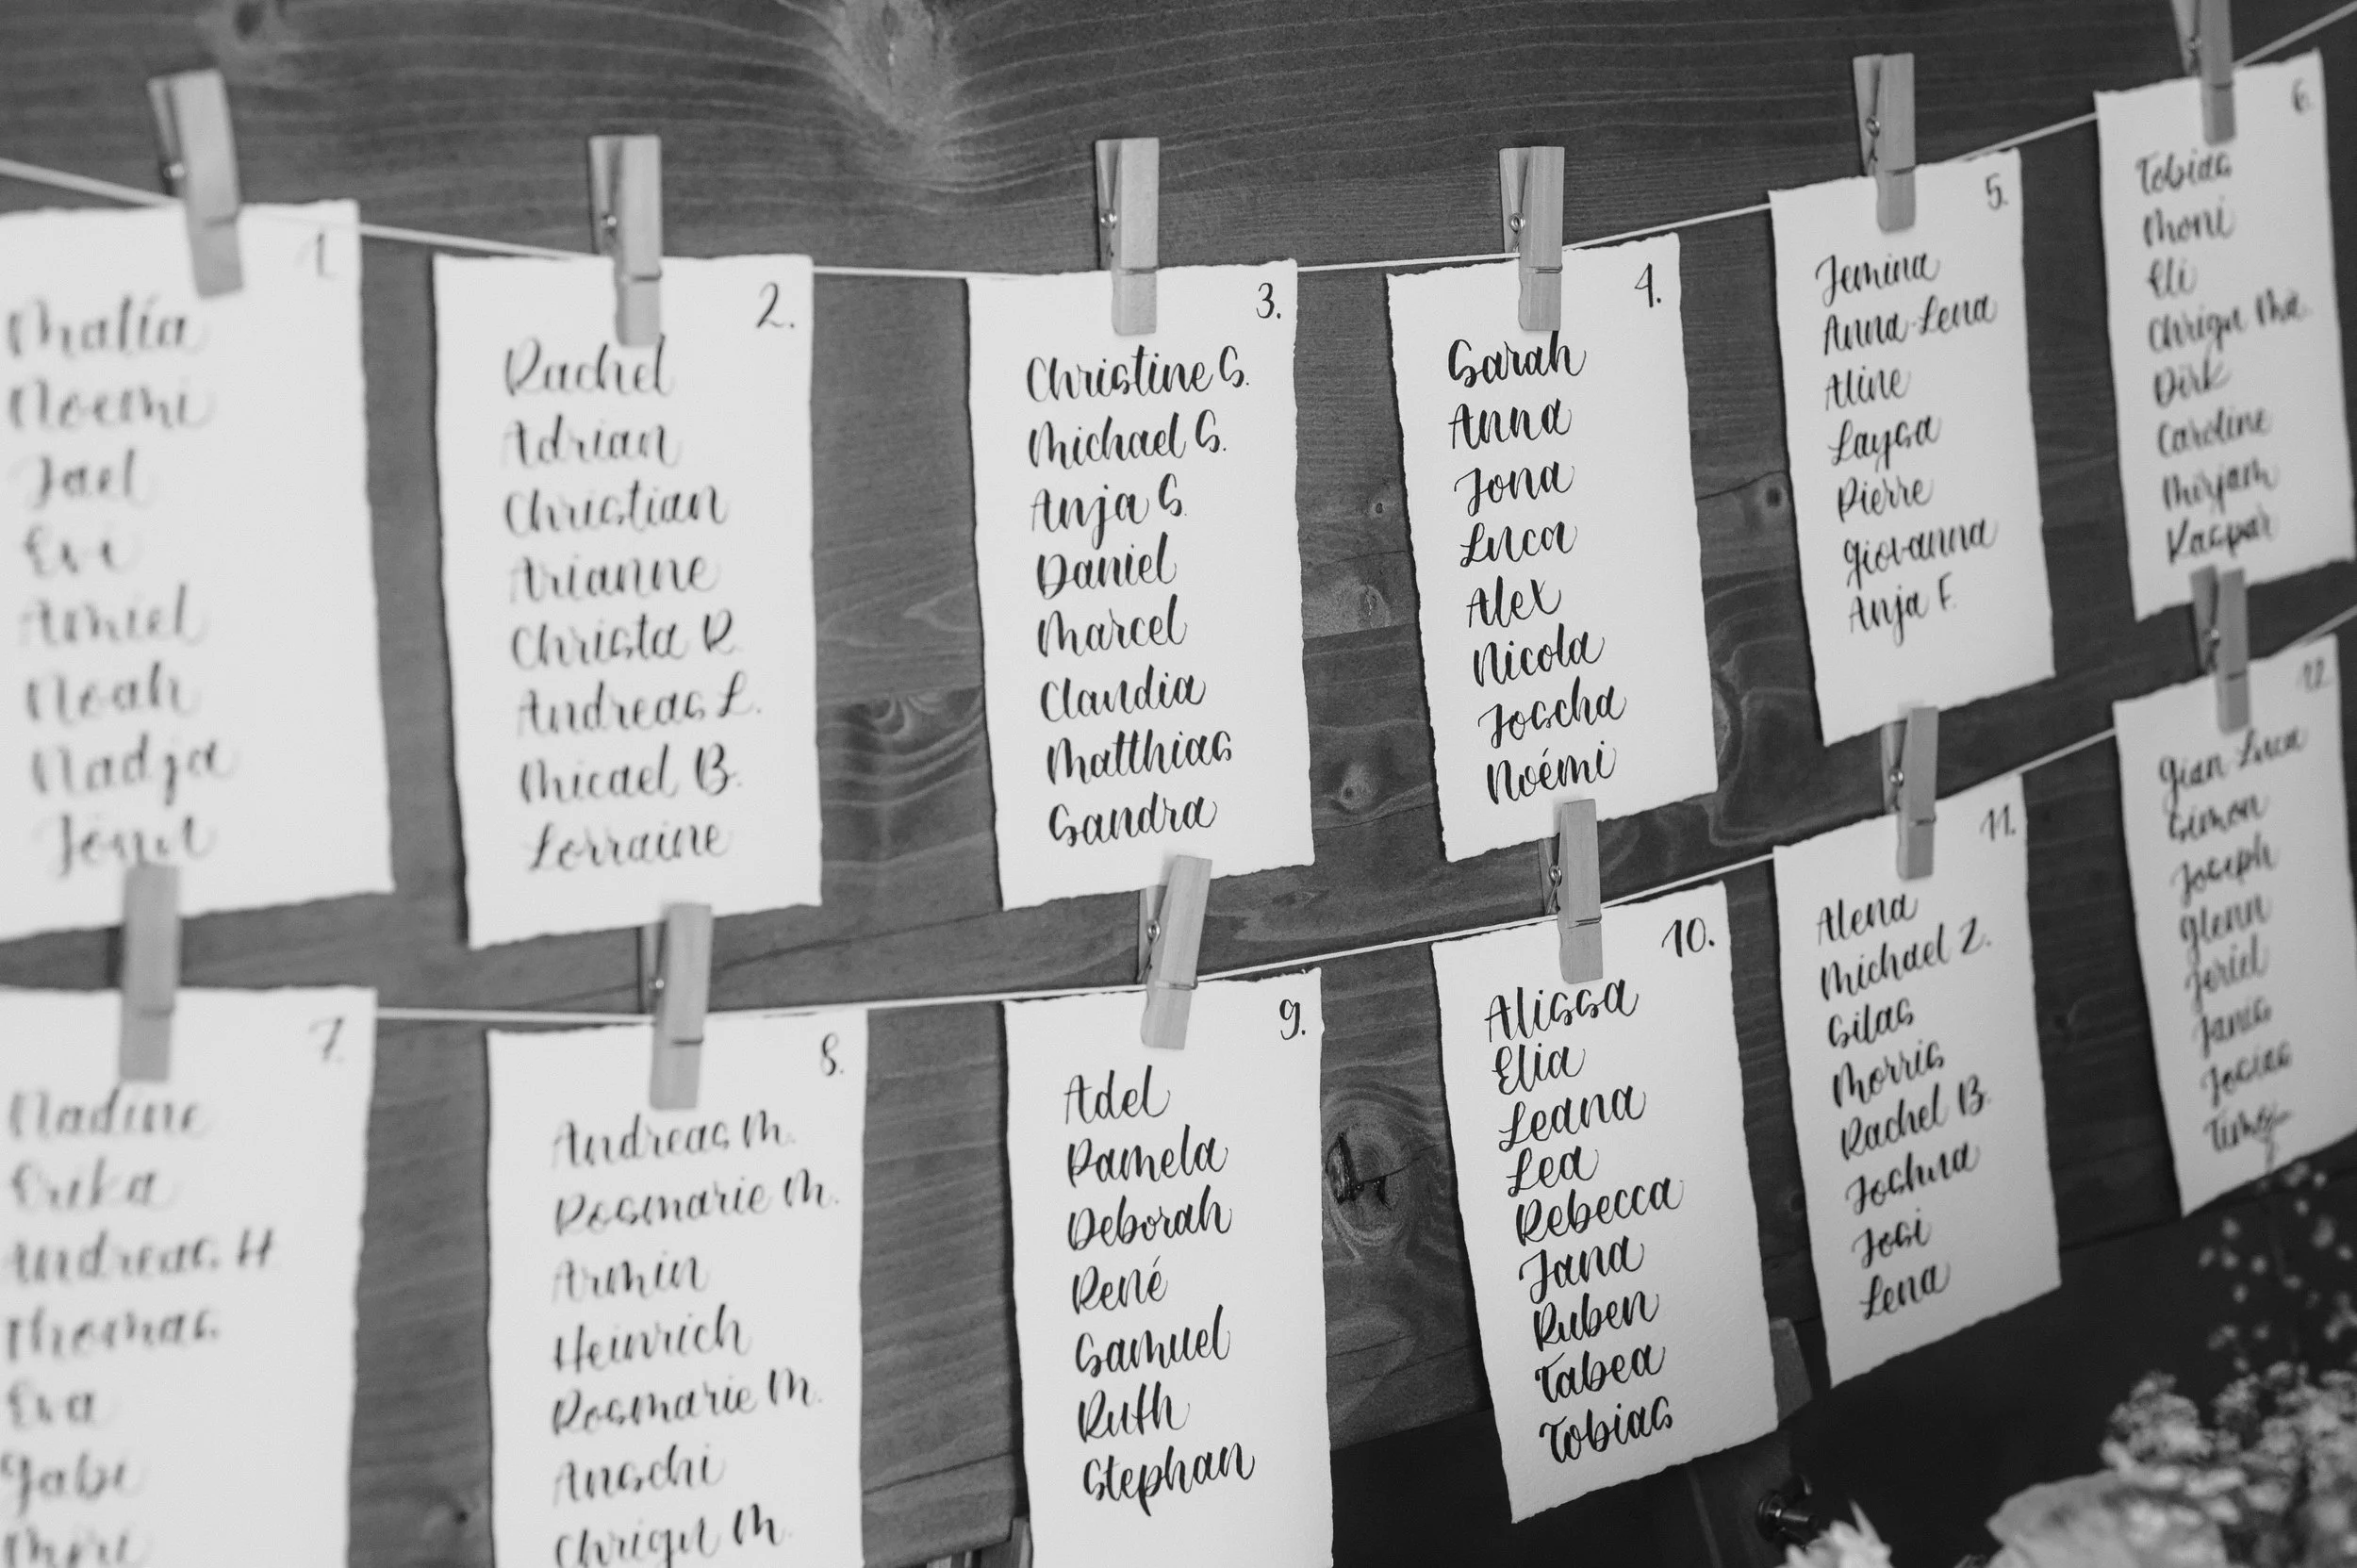 1.
Matía
Noemi
Jael
Evi
Amiel
Noah
Nadja
2.
Rachel
Adrian
Christian
Arianne
Christa R.
Andreas L.
Micael B.
Lorraine
3.
Christine S.
Michael S.
Anja S.
Daniel
Marcel
Claudia
Matthias
Sandra
4.
Sarah
Anna
Jona
Luca
Alex
Nicola
Joscha
Noémi
5.
Jemina
Anna-Lena
Aline
Laysa
Pierre
Giovanna
Anja F.
6.
Tobias
Moni
Eli
Chrigu Mä.
Dirk
Caroline
Mirjam
Kaspar
7.
Nadine
Erika
Andreas H
Thomas
Eva
Gabi
8.
Andreas M.
Rosmarie M.
Armin
Heinrich
Rosmarie M.
Anschi
Chrigu M.
9.
Adel
Pamela
Deborah
René
Samuel
Ruth
Stephan
10.
Alissa
Elia
Leana
Lea
Rebecca
Jana
Ruben
Tabea
Tobias
11.
Alena
Michael Z.
Silas
Morris
Rachel B.
Joshua
Josi
Lena
12.
Gian-Luca
Simon
Joseph
Glenn
Jeriel
Janis
Josias